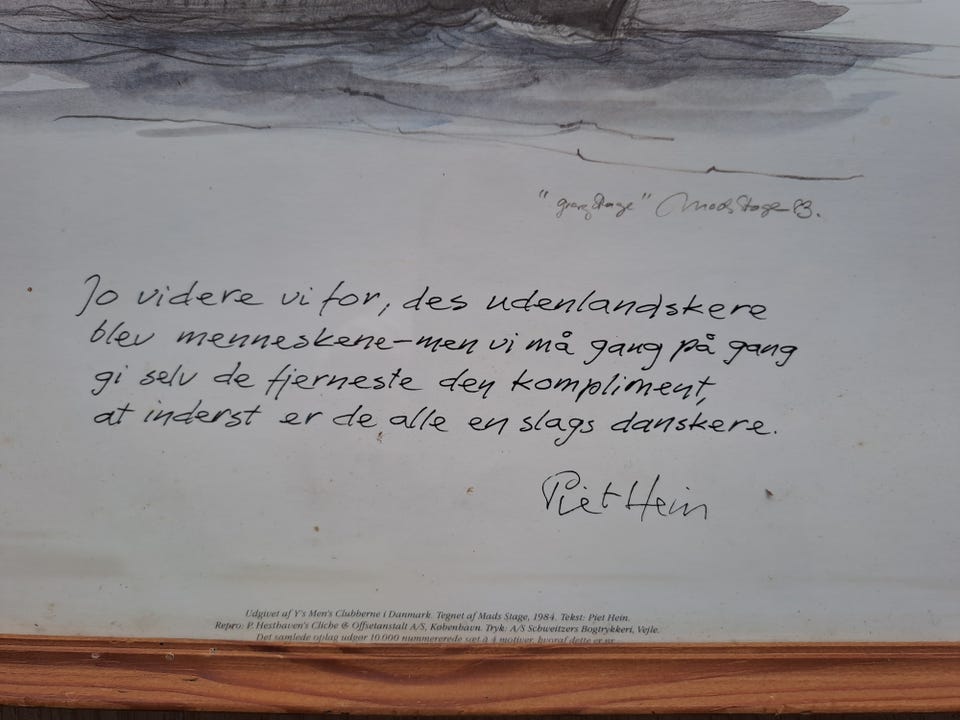 "grand Stage" Mads Stage 83.
Jo videre vi for, des udenlandskere
blev menneskene–men vi må gang på gang
gi selv de fjerneste den kompliment,
at inderst er de alle en slags danskere.
Piet Hein
Udgivet af Y's Men's Clubberne i Danmark. Tegnet af Mads Stage, 1984. Tekst: Piet Hein.
Repro: P. Hesthaven's Cliche & Offsetanstalt A/S, København. Tryk: A/S Schweitzers Bogtrykkeri, Vejle.
Det samlede oplag udgør 10.000 nummererede sæt à 4 motiver, hvoraf dette er nr.